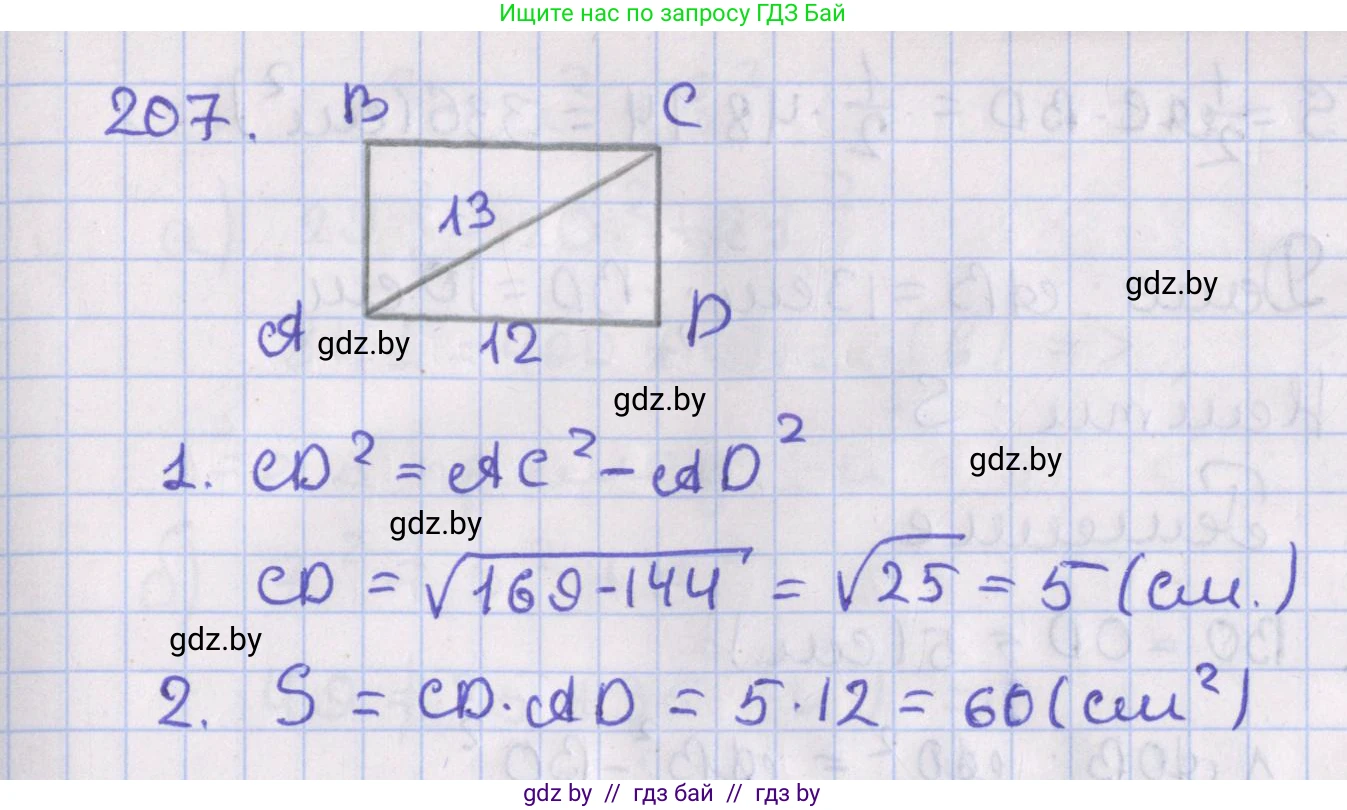 Ищите нас по запросу ГДЗ Бай
207.
B C
13
gdz.by
A gdz.by 12 D
gdz.by
1. CD² = AC² - AD²
gdz.by
gdz.by
CD = √169-144 = √25 = 5 (см.)
gdz.by
2. S = CD·AD = 5·12 = 60 (см²)
gdz.by // гдз бай // гдз by